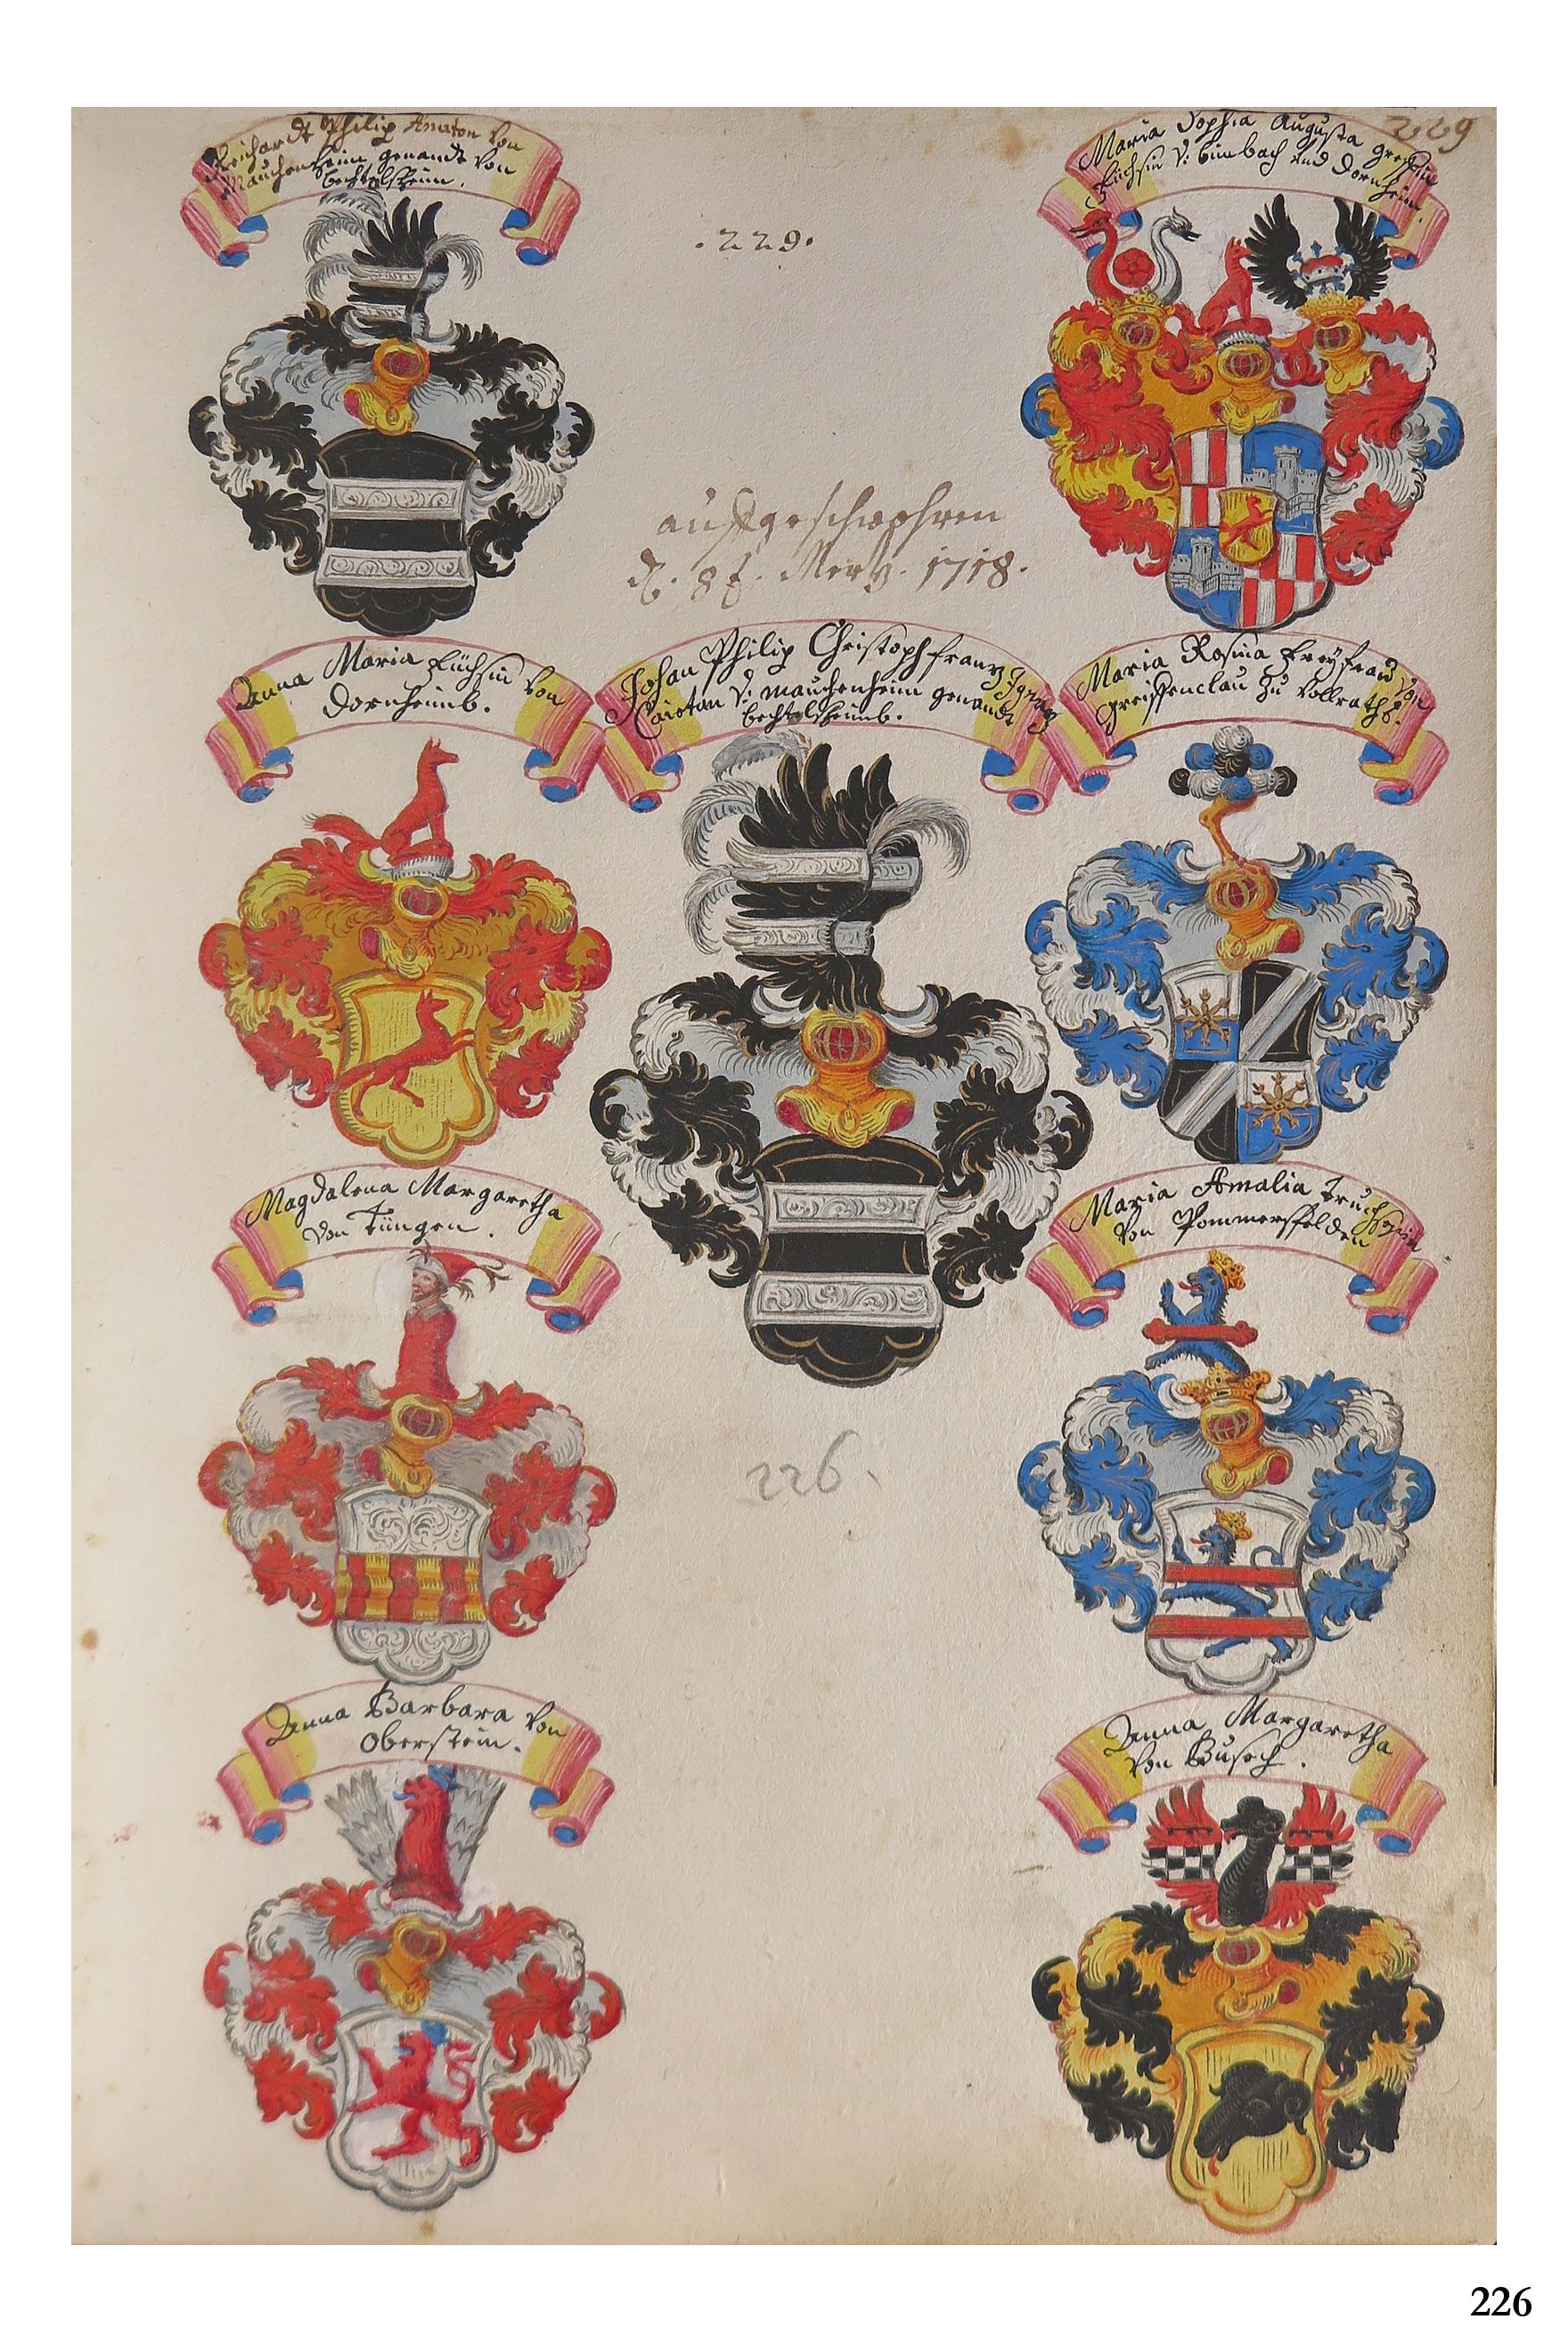 Reichardt Philip Anton von
Mauchenheim genandt von
bechtolsheim.
Maria Sophia Augusta greffin
füchsin v: bimbach und Dornheim.
229
.229.
auffgeschwohren
d. 8t. Merz. 1718.
Anna Maria Füchsin von
Dornheimb.
Johan Philip Christoph frantz Ignatz
Caietan v: mauchenheim genandt
bechtolsheimb.
Maria Rosina Freyfrau von
greiffenclau zu vollraths.
Magdalena Margaretha
von Tüngen.
Maria Amalia Truchsessin
von Pommersfelden
226.
Anna Barbara von
Oberstein.
Anna Margaretha
von Buseck.
226